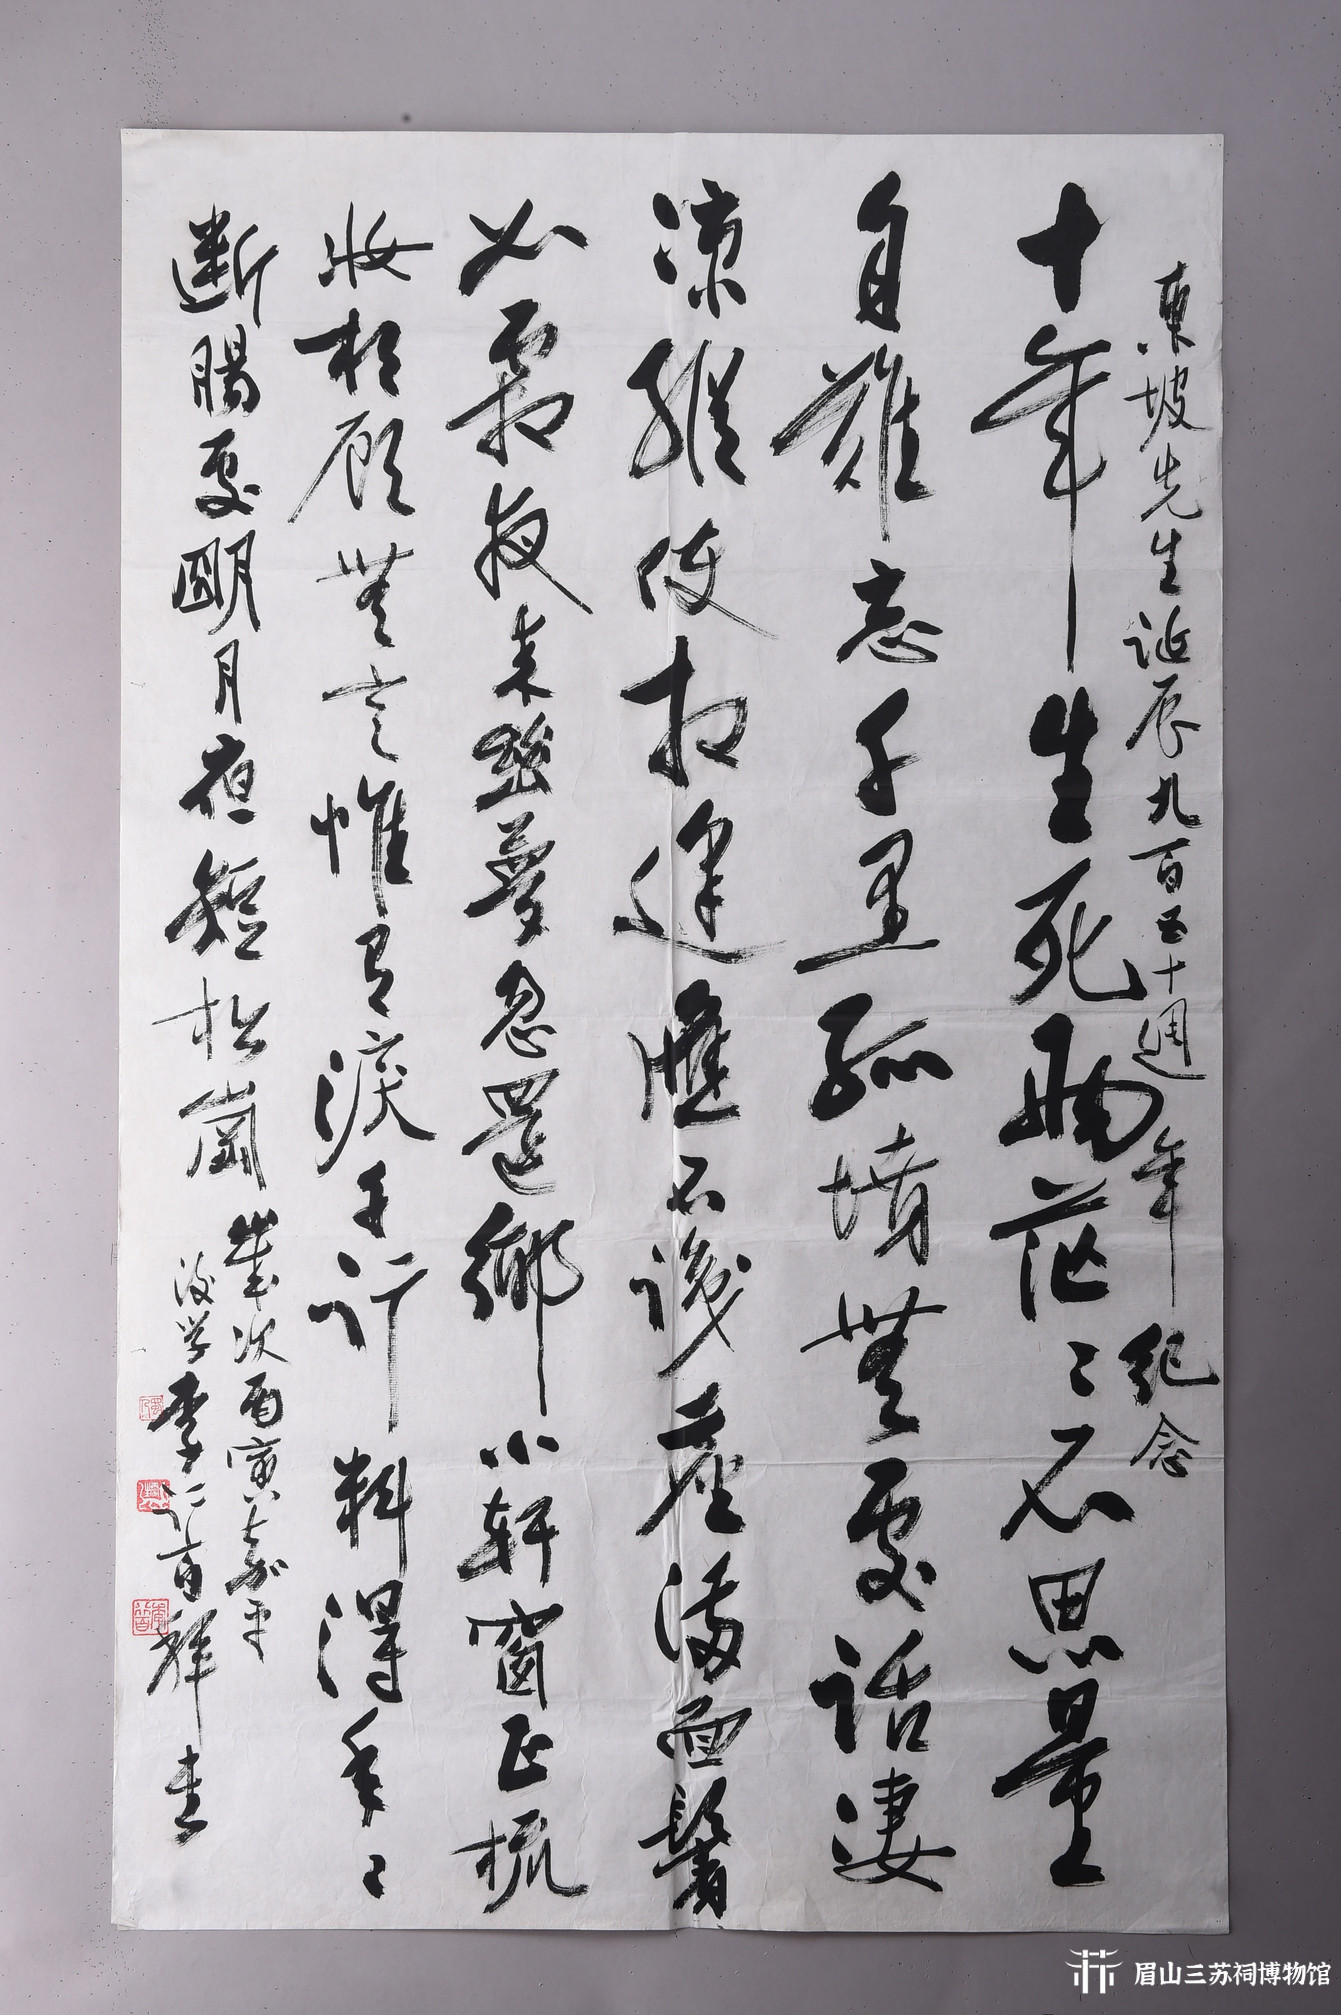 東坡先生誕辰九百五十週年紀念
十年生死兩茫〻不思量
自難忘千里孤墳無處話淒
涼縱使相逢應不識塵滿面鬢
如霜夜來幽夢忽還鄉小軒窗正梳
妝相顧無言惟有淚千行料得年〻
斷腸處朙月夜短松崗
歲次丙寅嘉平
後學李祥書
眉山三苏祠博物馆